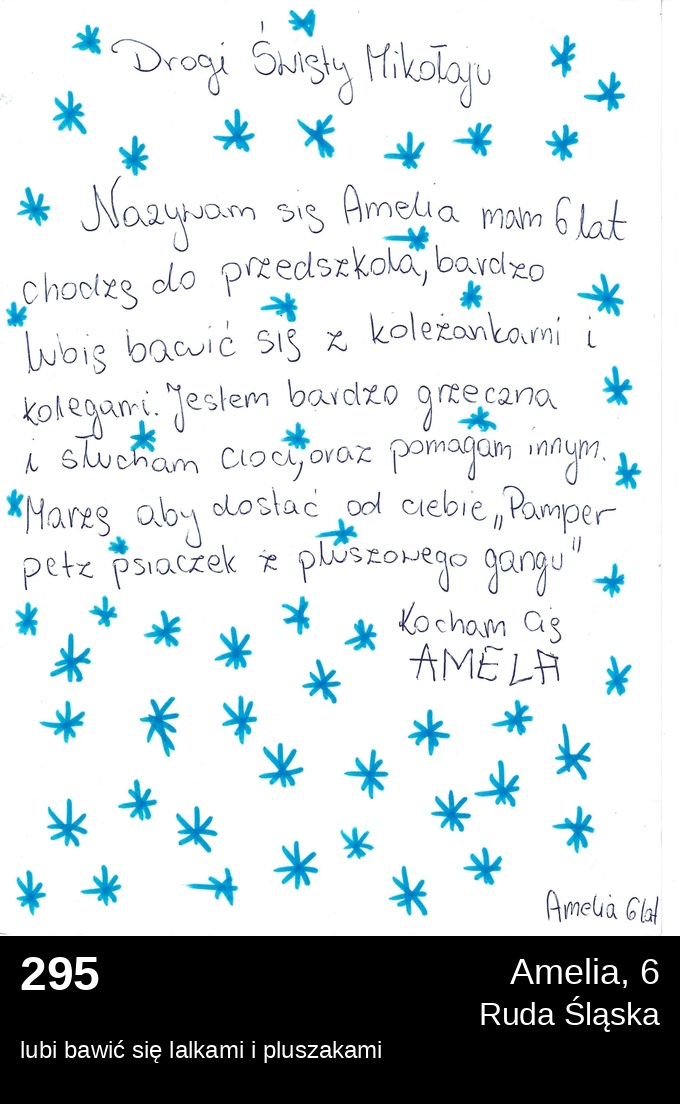 Drogi Święty Mikołaju
Nazywam się Amelia mam 6 lat
chodzę do przedszkola, bardzo
lubię bawić się z koleżankami i
kolegami. Jestem bardzo grzeczna
i słucham cioci, oraz pomagam innym.
Marzę aby dostać od ciebie „Pamper
petz psiaczek z pluszowego gangu"
Kocham Cię
AMELA
Amelia 6 lat
295
Amelia, 6
Ruda Śląska
lubi bawić się lalkami i pluszakami